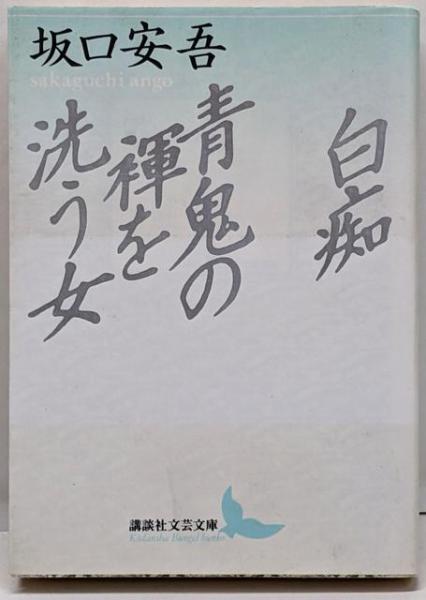 坂口安吾
sakaguchi ango
白痴
青鬼の
褌を
洗う女
講談社文芸文庫
Kōdansha Bungei bunko